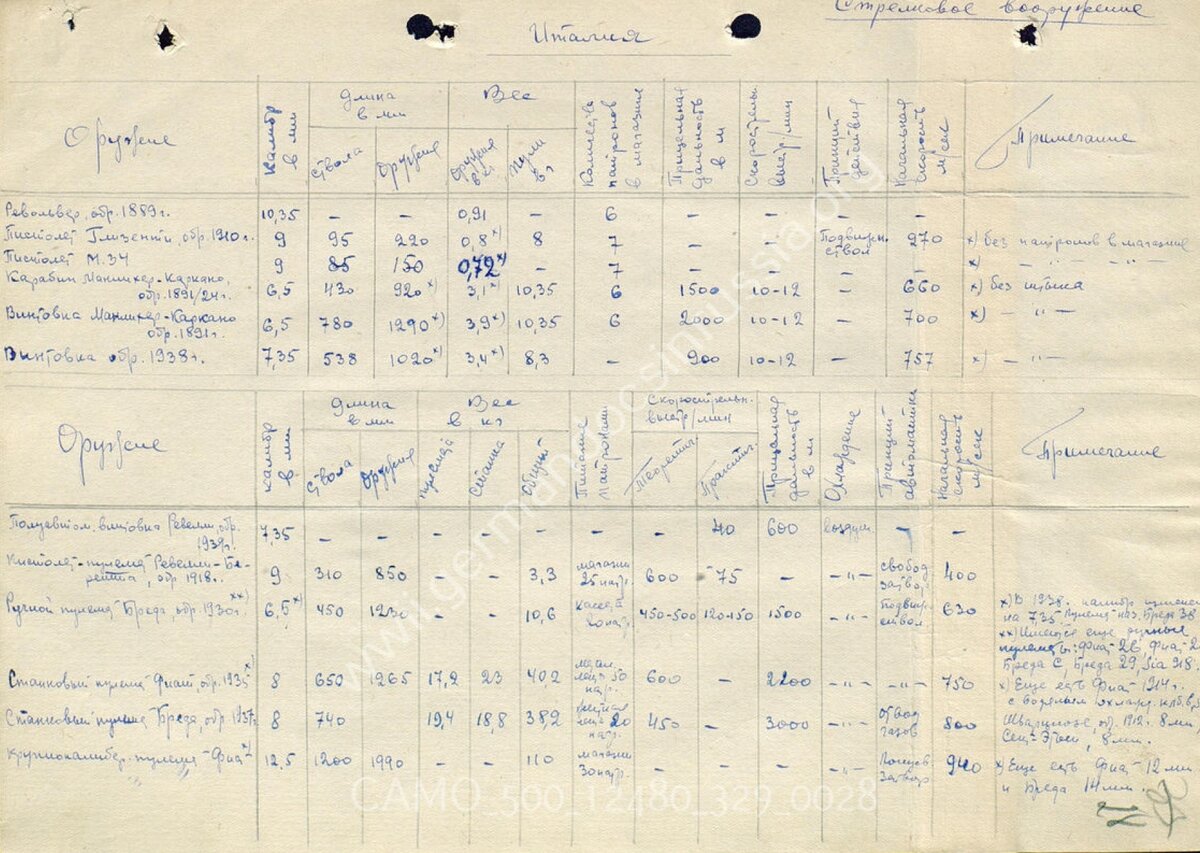 Стрелковое вооружение
Италия
Оружие | Калибр в мм | Длина в мм: ствола, оружия | Вес: оружия в кг, пули в г. | Количество патронов в магазине | Прицельная дальность в м | Скорострельн. выстр/мин | Принцип действия | Начальная скорость м/сек | Примечание
Револьвер, обр. 1889 г. | 10,35 | – | – | 0,91 | – | 6 | – | – | – | –
Пистолет Глизенти, обр. 1910 г. | 9 | 95 | 220 | 0,8 х) | 8 | 7 | – | – | Подвижн. ствол | 270 | х) без патронов в магазине
Пистолет М.34 | 9 | 85 | 150 | 0,72 х) | – | 7 | – | – | – | – | х) – " – " –
Карабин Манлихер-Каркано, обр. 1891/24 г. | 6,5 | 430 | 920 х) | 3,1 х) | 10,35 | 6 | 1500 | 10-12 | – | 660 | х) без штыка
Винтовка Манлихер-Каркано обр. 1891 г. | 6,5 | 780 | 1290 х) | 3,9 х) | 10,35 | 6 | 2000 | 10-12 | – | 700 | х) – " –
Винтовка обр. 1938 г. | 7,35 | 538 | 1020 х) | 3,4 х) | 8,3 | – | 900 | 10-12 | – | 757 | х) – " –
Оружие | Калибр в мм | Длина в мм: ствола, оружия | Вес в кг: пулемета, станка, общий | Питание патронами | Скорострельн. выстр/мин: Теоретич., Практич. | Прицельная дальность в м | Охлаждение | Принцип автоматики | Начальная скорость м/сек | Примечание
Полуавтом. винтовка Ревелли, обр. 1939 г. | 7,35 | – | – | – | – | – | – | – | 40 | 600 | воздуш. | – | –
Пистолет-пулемет Ревелли-Беретта, обр. 1918 г. | 9 | 310 | 850 | – | – | 3,3 | магазин 25 патр. | 600 | 75 | – | – " – | свобод. затвор | 400
Ручной пулемет Бреда, обр. 1930 г. хх) | 6,5 х) | 450 | 1230 | – | – | 10,6 | кассета 20 патр. | 450-500 | 120-150 | 1500 | – " – | Подвижн. ствол | 630 | х) В 1938 г. калибр
на 7,35. Пулемет наз. Бреда 38
хх) Имеются еще ручные
пулеметы: Фиат 26, Фиат
Бреда С, Бреда 29, Sia 918
Станковый пулемет Фиат, обр. 1935 х) | 8 | 650 | 1265 | 17,2 | 23 | 40,2 | лента 50 патр. | 600 | – | 2200 | – " – | – " – | 750 | х) Еще есть Фиат 1914 г.
с водяным охлажд.
Шварцлозе, обр. 1912. 8 мм,
8 мм.
Станковый пулемет Бреда, обр. 1937 г. | 8 | 740 | 19,4 | 18,8 | 38,2 | жесткая лента 20 патр. | 450 | – | 3000 | – " – | отвод газов | 800
Крупнокалибер. пулемет Фиат х) | 12,5 | 1200 | 1990 | – | – | 110 | магазин 30 патр. | – | – | – | – " – | затвор | 940 | х) Еще есть Фиат 12 мм
и Бреда 14 мм.
www.germandocsinrussia.org
CAMO_500_12480_329_0028